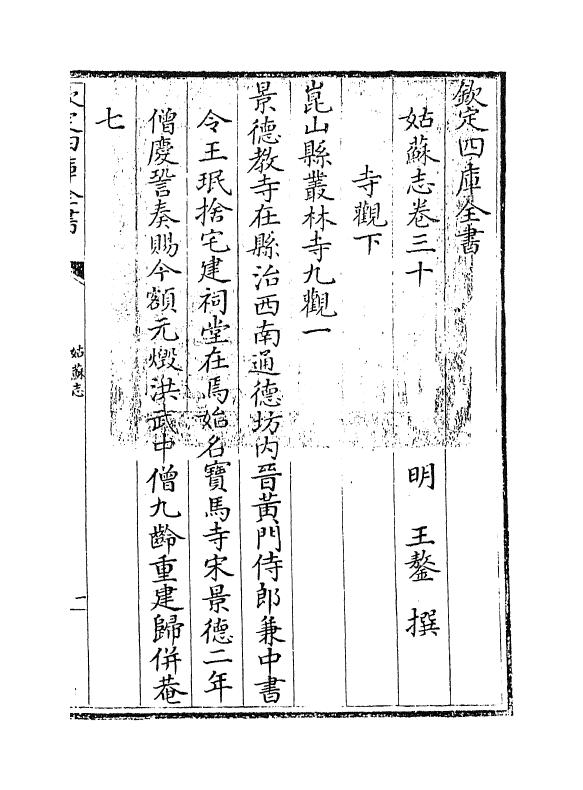 欽定四庫全書
姑蘇志卷三十　明　王鏊　撰
寺觀下
崑山縣叢林寺九觀一
景德教寺在縣治西南通德坊内晉黄門侍郎兼中書
令王珉捨宅建祠堂在焉始名寶馬寺宋景德二年
僧慶詧奏賜今額元燬洪武中僧九齡重建歸併菴
七
欽定四庫全書
姑蘇志